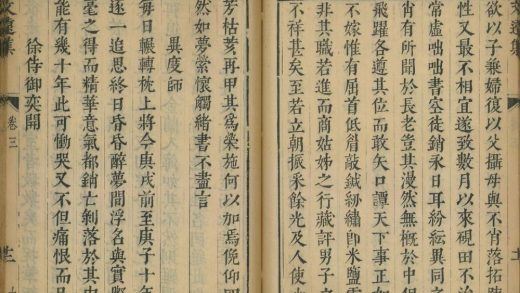 欲以子兼婦復以父攝母與不肖落拓
性又最不相宜遂致數月以來硯田不治
常虛咄咄書空徒銷永日耳紛紜異同
肖有所聞於長老豈其漫然無概於中但
飛躍各遵其位而敢矢口譚天下事正如
不嫁惟有屈首低眉敲鍼紉繡即米鹽
非其職若進而商姑姊之行藏評男子
不祥甚矣至若立朝振采餘光及人使
芳枯荄再甲其為榮施何以加焉俛仰
然如夢縈懷觸緒書不盡言
異度師
每日輾轉枕上將今庚戌前至庚子十年
逐一追思終日昏昏醉夢間浮名與實
毫之得而精華意氣都銷亡剝落於其
能有幾十年此可慟哭又不但痛恨而且
徐侍御奕開
文遠集
卷三